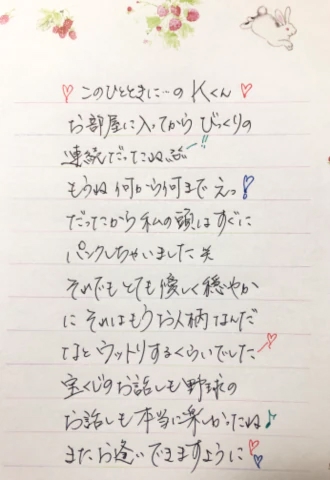 ♡このひとときに…のKくん♡
お部屋に入ってからびっくりの
連続だったね!!
もうね何から何までえっ!
だったから私の頭はすぐに
パンクしちゃいました笑
それでもとても優しく穏やか
にそれはもうお人柄なんだ
なとウットリするくらいでした♡
宝くじのお話しも野球の
お話しも本当に楽しかったね♪
またお逢いできますように♡♡